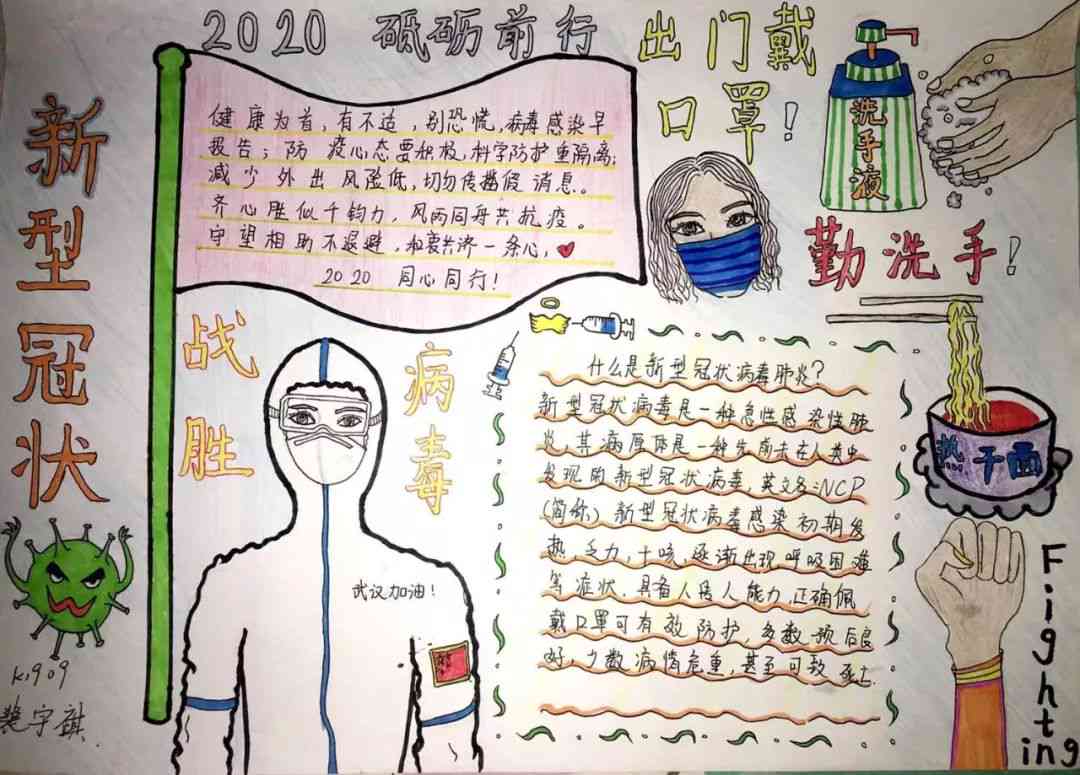 2020 砥砺前行
出门戴
口罩!
新型冠状
健康为首,有不适,别恐慌,病毒感染早
报告;防 疫心态要积极,科学防护重隔离;
减少外出风险低,切勿传播假消息。
齐心胜似千钧力,风雨同舟共抗疫。
守望相助不退避,和衷共济一条心,
2020 同心同行!
洗手液
勤洗手!
战胜
病毒
武汉加油!
什么是新型冠状病毒肺炎?
新型冠状病毒是一种急性感染性肺
炎,其病原体是一种先前未在人类中
发现的新型冠状病毒,英文名:NCP
(简称)新型冠状病毒感染初期发
热,乏力,干咳,逐渐出现呼吸困难
等症状,具备人传人能力,正确佩
戴口罩可有效防护,多数预后良
好,少数病情危重,甚至可致死亡.
热干面
Fighting
K1909
宇祺